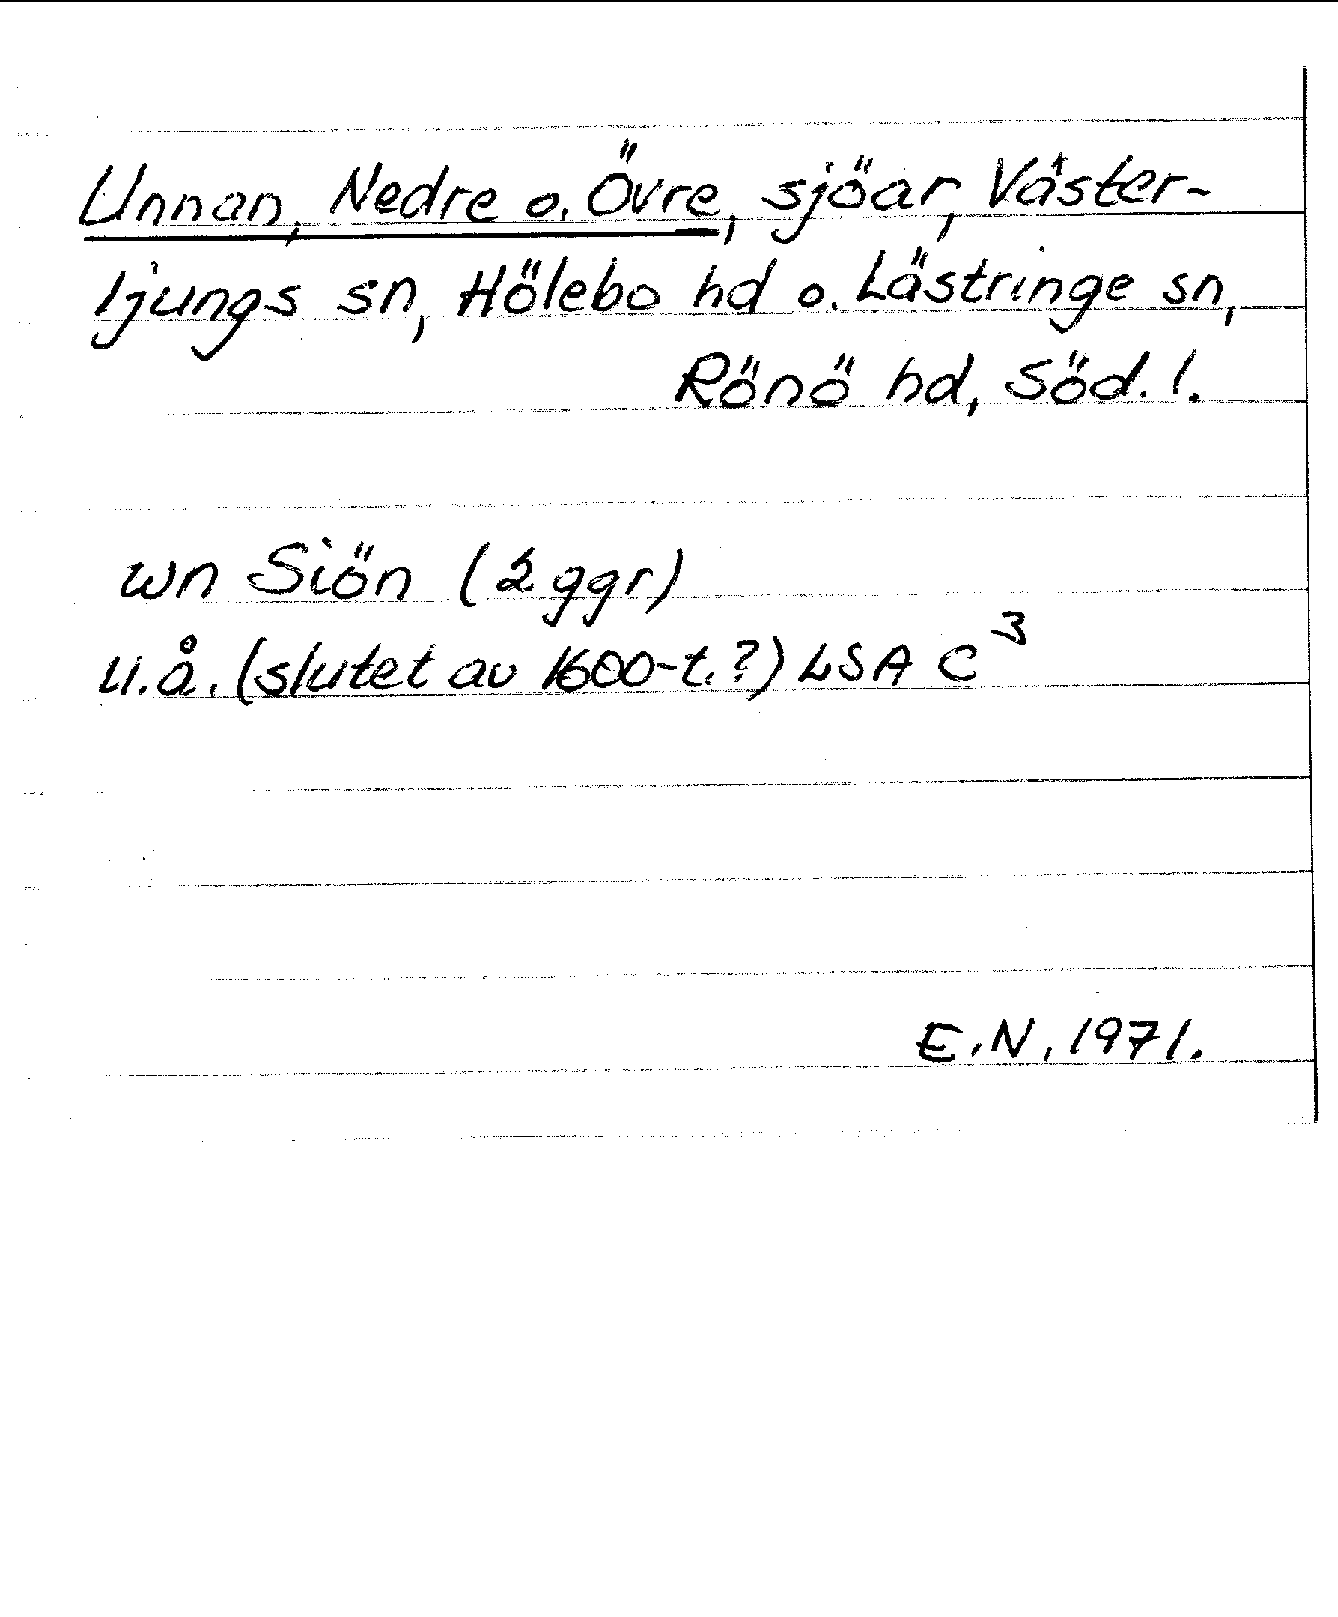 Unnan, Nedre o. Övre, sjöar, Väster-
ljungs sn, Hölebo hd o. Lästringe sn,
Rönö hd, Söd. l.
wn Siön (2 ggr)
u.å. (slutet av 1600-t.?) LSA C³
E.N. 1971.